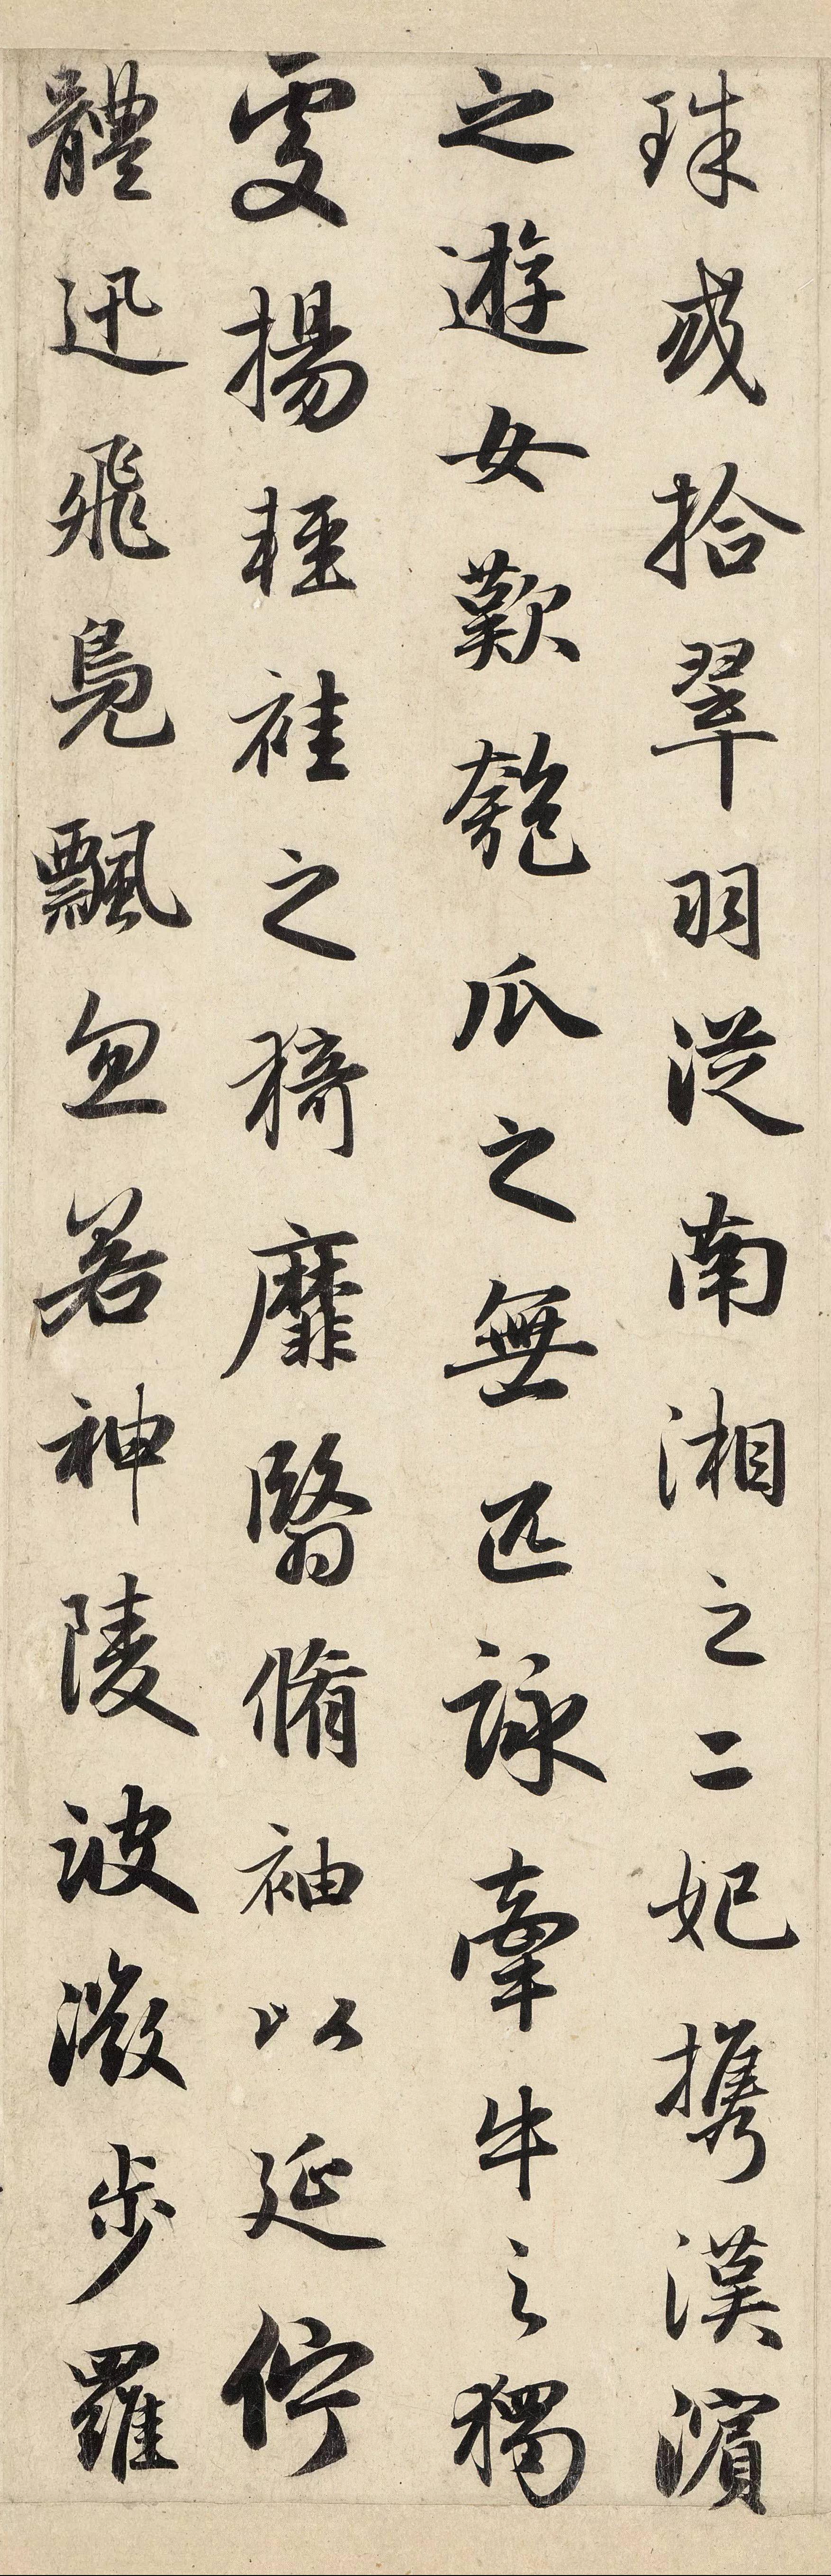 珠或拾翠羽從南湘之二妃攜漢濱
之遊女歎匏瓜之無匹詠牽牛之獨
處揚輕袿之猗靡翳脩袖以延佇
體迅飛鳧飄忽若神陵波微步羅